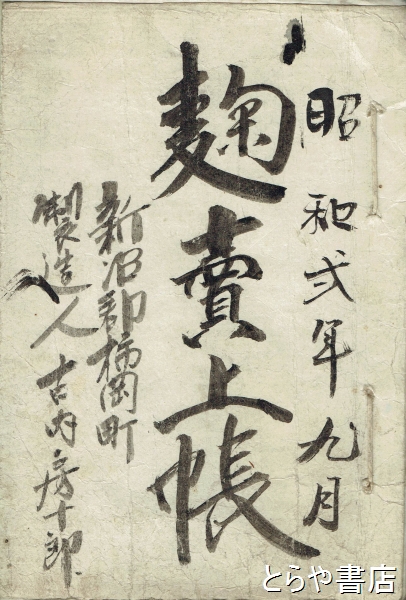 昭和弍年九月
麹賣上帳
新治郡柿岡町
製造人 吉内房十郎
とらや書店